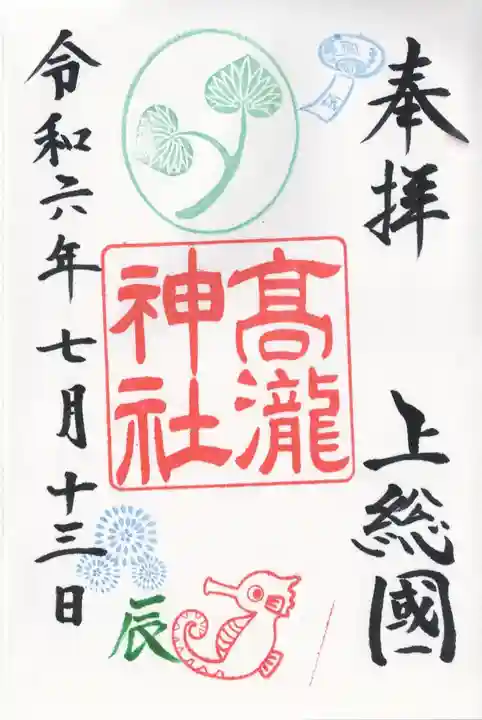 奉拝
上総國一
髙瀧
神社
辰
令和六年七月十三日